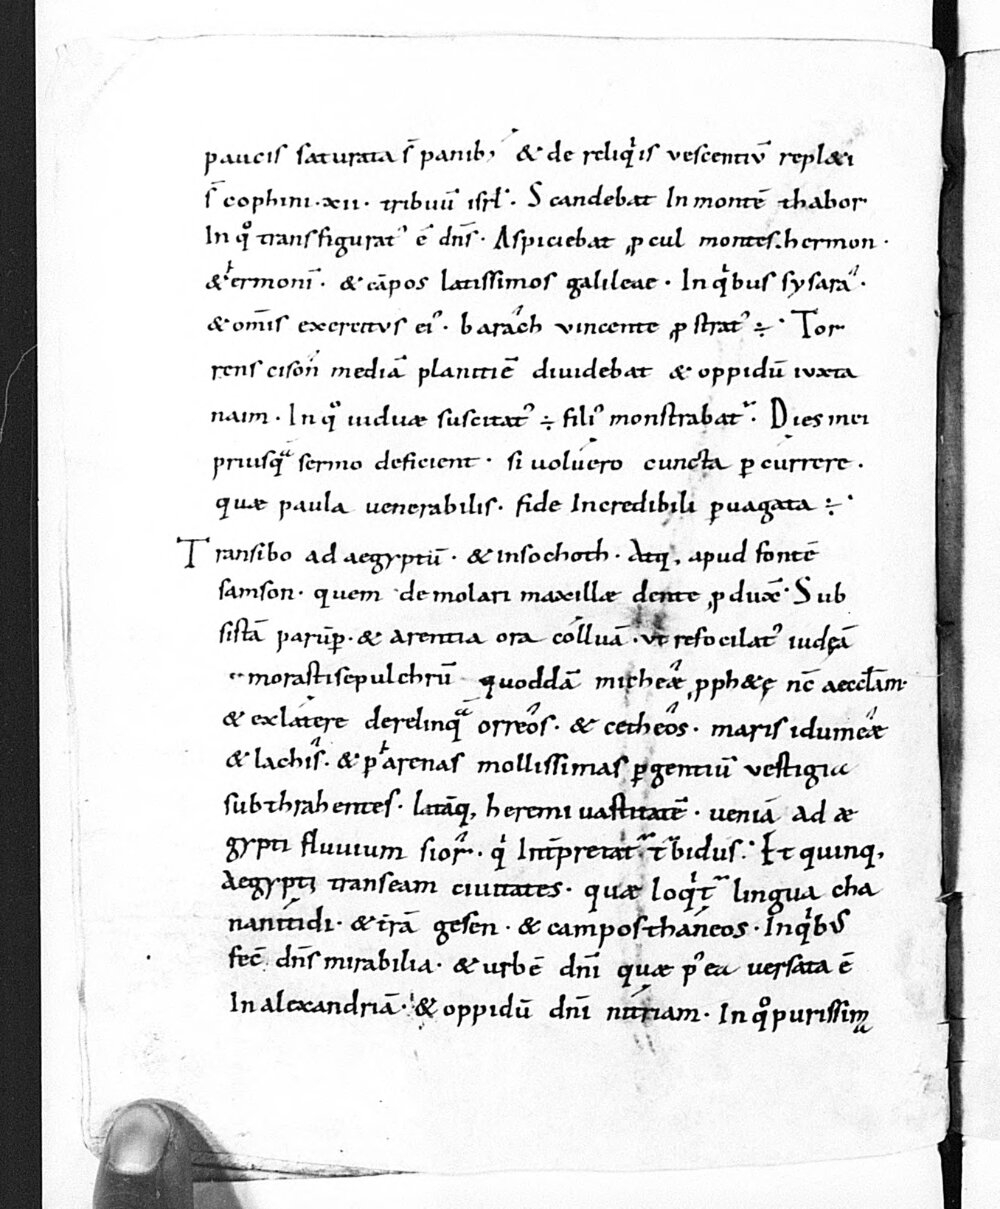 paucis saturata s̄ panib; & de reliqͥis vescentiū repl&i
s̄ cophini · xii · tribuū isrl̄ · Scandebat In montē thabor
In qͦ transfigurat᾽ ē dn̄s · Aspiciebat ꝓcul montes hermon ·
& ermoni᷒ · & cāpos latissimos galileae · In qͥbus sysara ·
& om̄is exercitus ei᾽ · barach vincente ꝓstrat᾽ ÷ · Tor
rens cison mediā planitiē diuidebat & oppidū iuxta
naim · In qͦ uiduæ suscitat᾽ ÷ fili᾽ monstrabat᾽ · Dies mei
priusqᷓ sermo deficient · si uoluero cuncta ꝑcurrere ·
quæ paula uenerabilis · fide Incredibili ꝑuagata ÷ ·
Transibo ad aegyptū · & insochoth · Atq; apud fontē
samson · quem de molari maxillæ dente ꝓduxē · Sub
sistā parūꝑ · & arentia ora colluā · ut refocilat᾽ uideā
morasti sepulchrū quoddā micheæ ꝓph&ę nc̄ aeccl̄am ·
& ex latere derelinqᷓ orreos · & cetheos · maris idumeæ
& lachis · & ꝑ arenas mollissimas ꝑgentiū vestigia
subthrahentes · latāq; heremi uastitatē · ueniā ad æ
gypti fluuium sior · qͥ Int̄pretat᾽ t᾽bidus · Et quinq;
Aegypti transeam ciuitates · quæ loqͥt᾽ lingua cha
nanitidi · & t̄rā gesen · & campos thaneos · In qͥbus
fec̄ dn̄s mirabilia · & urbē dn̄i quæ p᾽ea uersata ē
In alexandriā · & oppidū dn̄i nitriam · In qͦ purissima